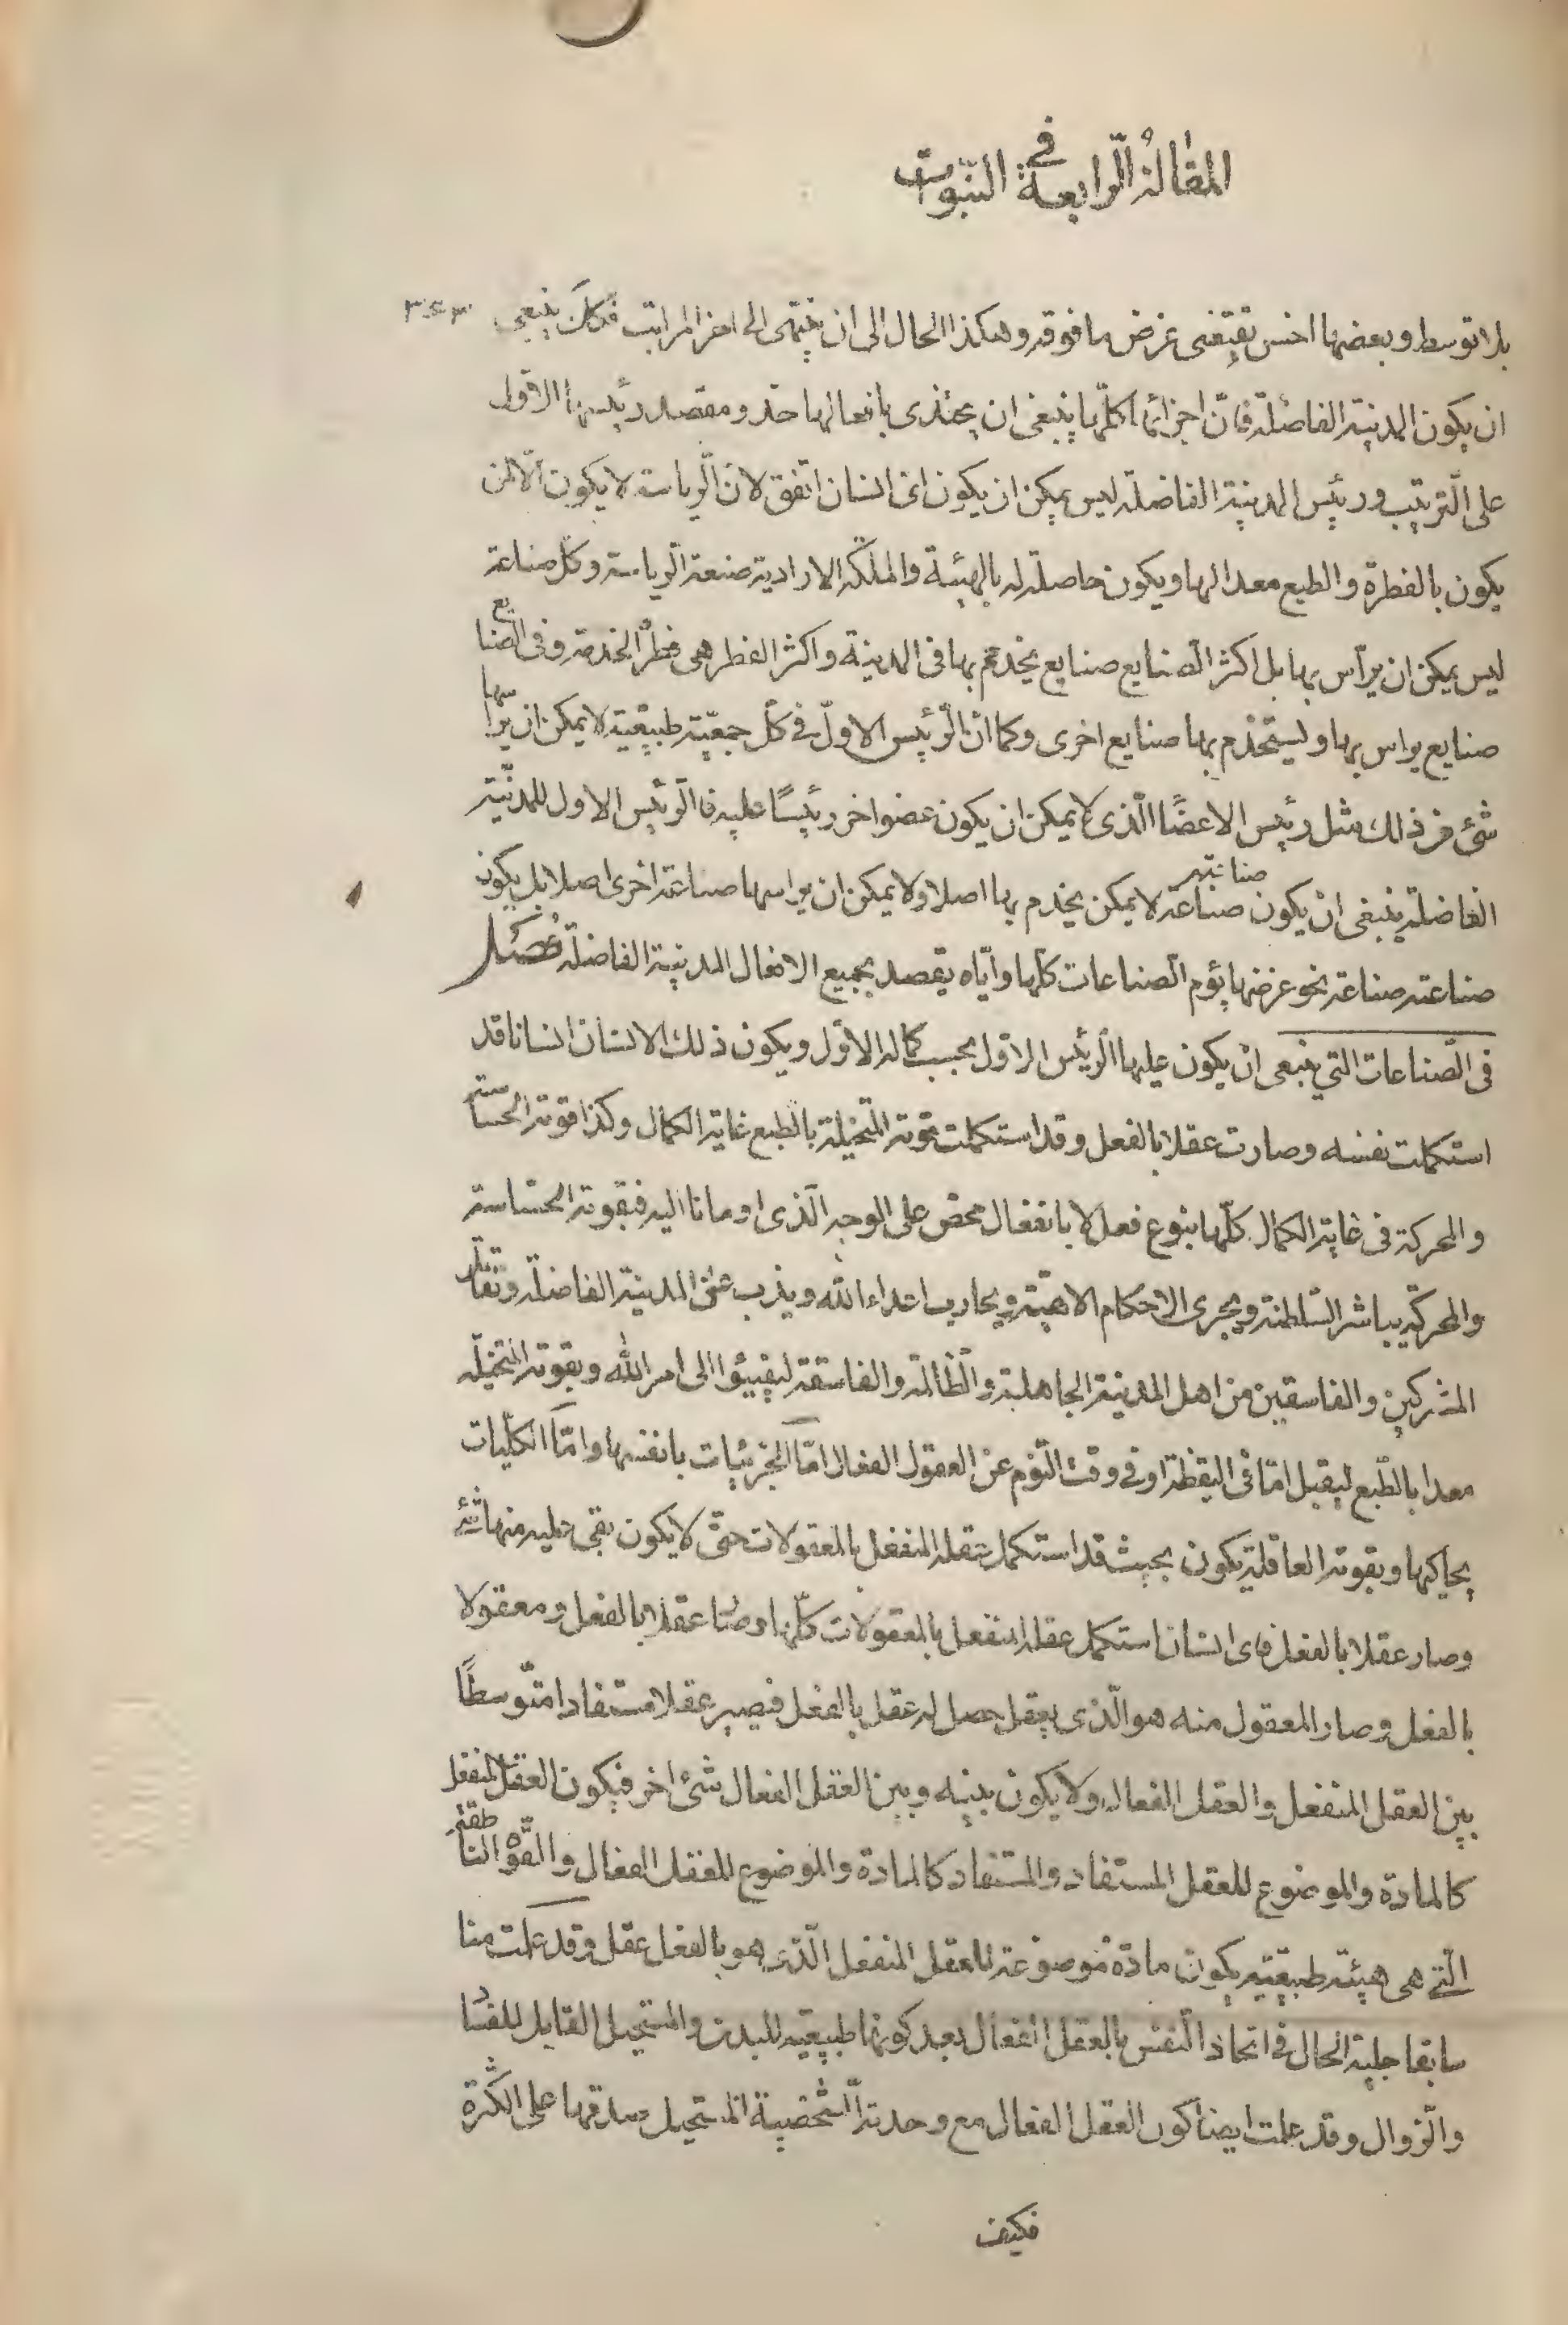 المقالة الرابعة في النبوات
بلا توسط وبعضها اخس تقتفى غرض ما فوقه وهكذا الحال الى ان ينتهى الى اخر المراتب فكك ينبغى ٣٤٣
ان يكون المدينة الفاضلة فانّ اجزائها كلّها ينبغى ان يحتذى بافعالها حذو مقصد رئيسها الاول
على الترتيب ورئيس المدينة الفاضلة ليس يمكن ان يكون اى انسان اتفق لانّ الرياسة لا يكون الّا لمن
يكون بالفطرة والطبع معدا لها ويكون حاصلة له بالهيئة والملكة الارادية صنعة الرياسة وكل صناعة
ليس يمكن ان يرأس بها بل اكثر الصنايع صنايع يخدم بها فى المدينة واكثر الفطر هى فطر الخدمة وفى الصنايع
صنايع يراس بها ويستخدم بها صنايع اخرى وكما انّ الرئيس الاول فى كل جمعية طبيعية لا يمكن ان يرأسها
شئ من ذلك مثل رئيس الاعضا الّذى لا يمكن ان يكون عضو اخر رئيسًا عليه فالرئيس الاول للمدنية
الفاضلة ينبغى ان يكون صناعته صناعة لا يمكن يخدم بها اصلا ولا يمكن ان يراسها صناعة اخرى اصلا بل يكون
صناعته صناعة نحو غرضها يؤم الصناعات كلّها واياه يقصد بجميع الافعال المدينة الفاضلة فصل
فى الصّناعات التي ينبغى ان يكون عليها الرئيس الاوّل بحسب كماله الاوّل ويكون ذلك الانسان انسانا قد
استكملت نفسه وصارت عقلا بالفعل وقد استكملت قوته المتخيلة بالطبع غاية الكمال وكذا قوته الحساسة
والمحركة فى غاية الكمال كلّها بنوع فعل لا بانفعال محض على الوجه الّذى اومانا اليه فبقوته الحساسة
والمحركة يباشر السلطنة ويجرى الاحكام الالهية ويحارب اعداء الله ويذب عن المدينة الفاضلة وتقاتل
المشركين والفاسقين من اهل المدينة الجاهلية والظالمة والفاسقة ليفيئوا الى امر الله وبقوته المتخيلة
معدا بالطّبع ليقبل امّا فى اليقظة او فى وقت النّوم عن العقول الفعال امّا الجزئيات بانفسها وامّا الكلّيات
يحاكيها وبقوته العاقلة يكون بحيث قد استكمل عقله المنفعل بالمعقولات حتى لا يكون بقى عليه منها شئ
وصار عقلا بالفعل فاى انسان استكمل عقله المنفعل بالمعقولات كلّها وصا عقلا بالفعل ومعقولا
بالفعل وصار المعقول منه هو الّذى يعقل حصل له عقل بالفعل فيصير عقلا مستفادا متوسطا
بين العقل المنفعل والعقل الفعال ولا يكون بينه وبين العقل الفعال شئ اخر فيكون العقل المنفعل
كالمادة والموضوع للعقل المستفاد والمستفاد كالمادة والموضوع للعقل الفعال والقوّة الناطقة
الّتى هى هيئة طبيعية يكون مادة موضوعة للعقل المنفعل الّذى هو بالفعل عقل وقد علمت منا
سابقا جلية الحال فى اتحاد النّفس بالعقل الفعال بعد كونها طبيعية للبدن والمستحيل القابل للفسا
والزوال وقد علمت ايضا كون العقل الفعال مع وحدته الشخصية المستحيل صدقها على الكثرة
فكيف